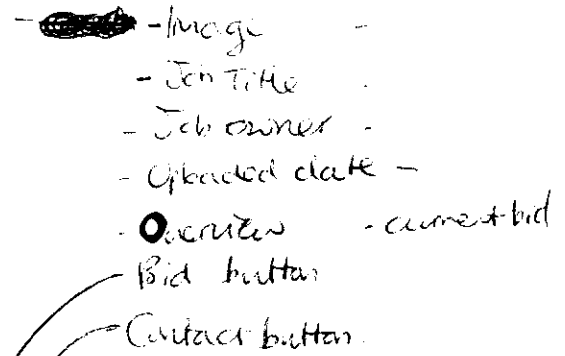 - Image -
- Job Title .
- Job owner -
- Uploaded date -
- Overview - current bid
Bid button
Contact button